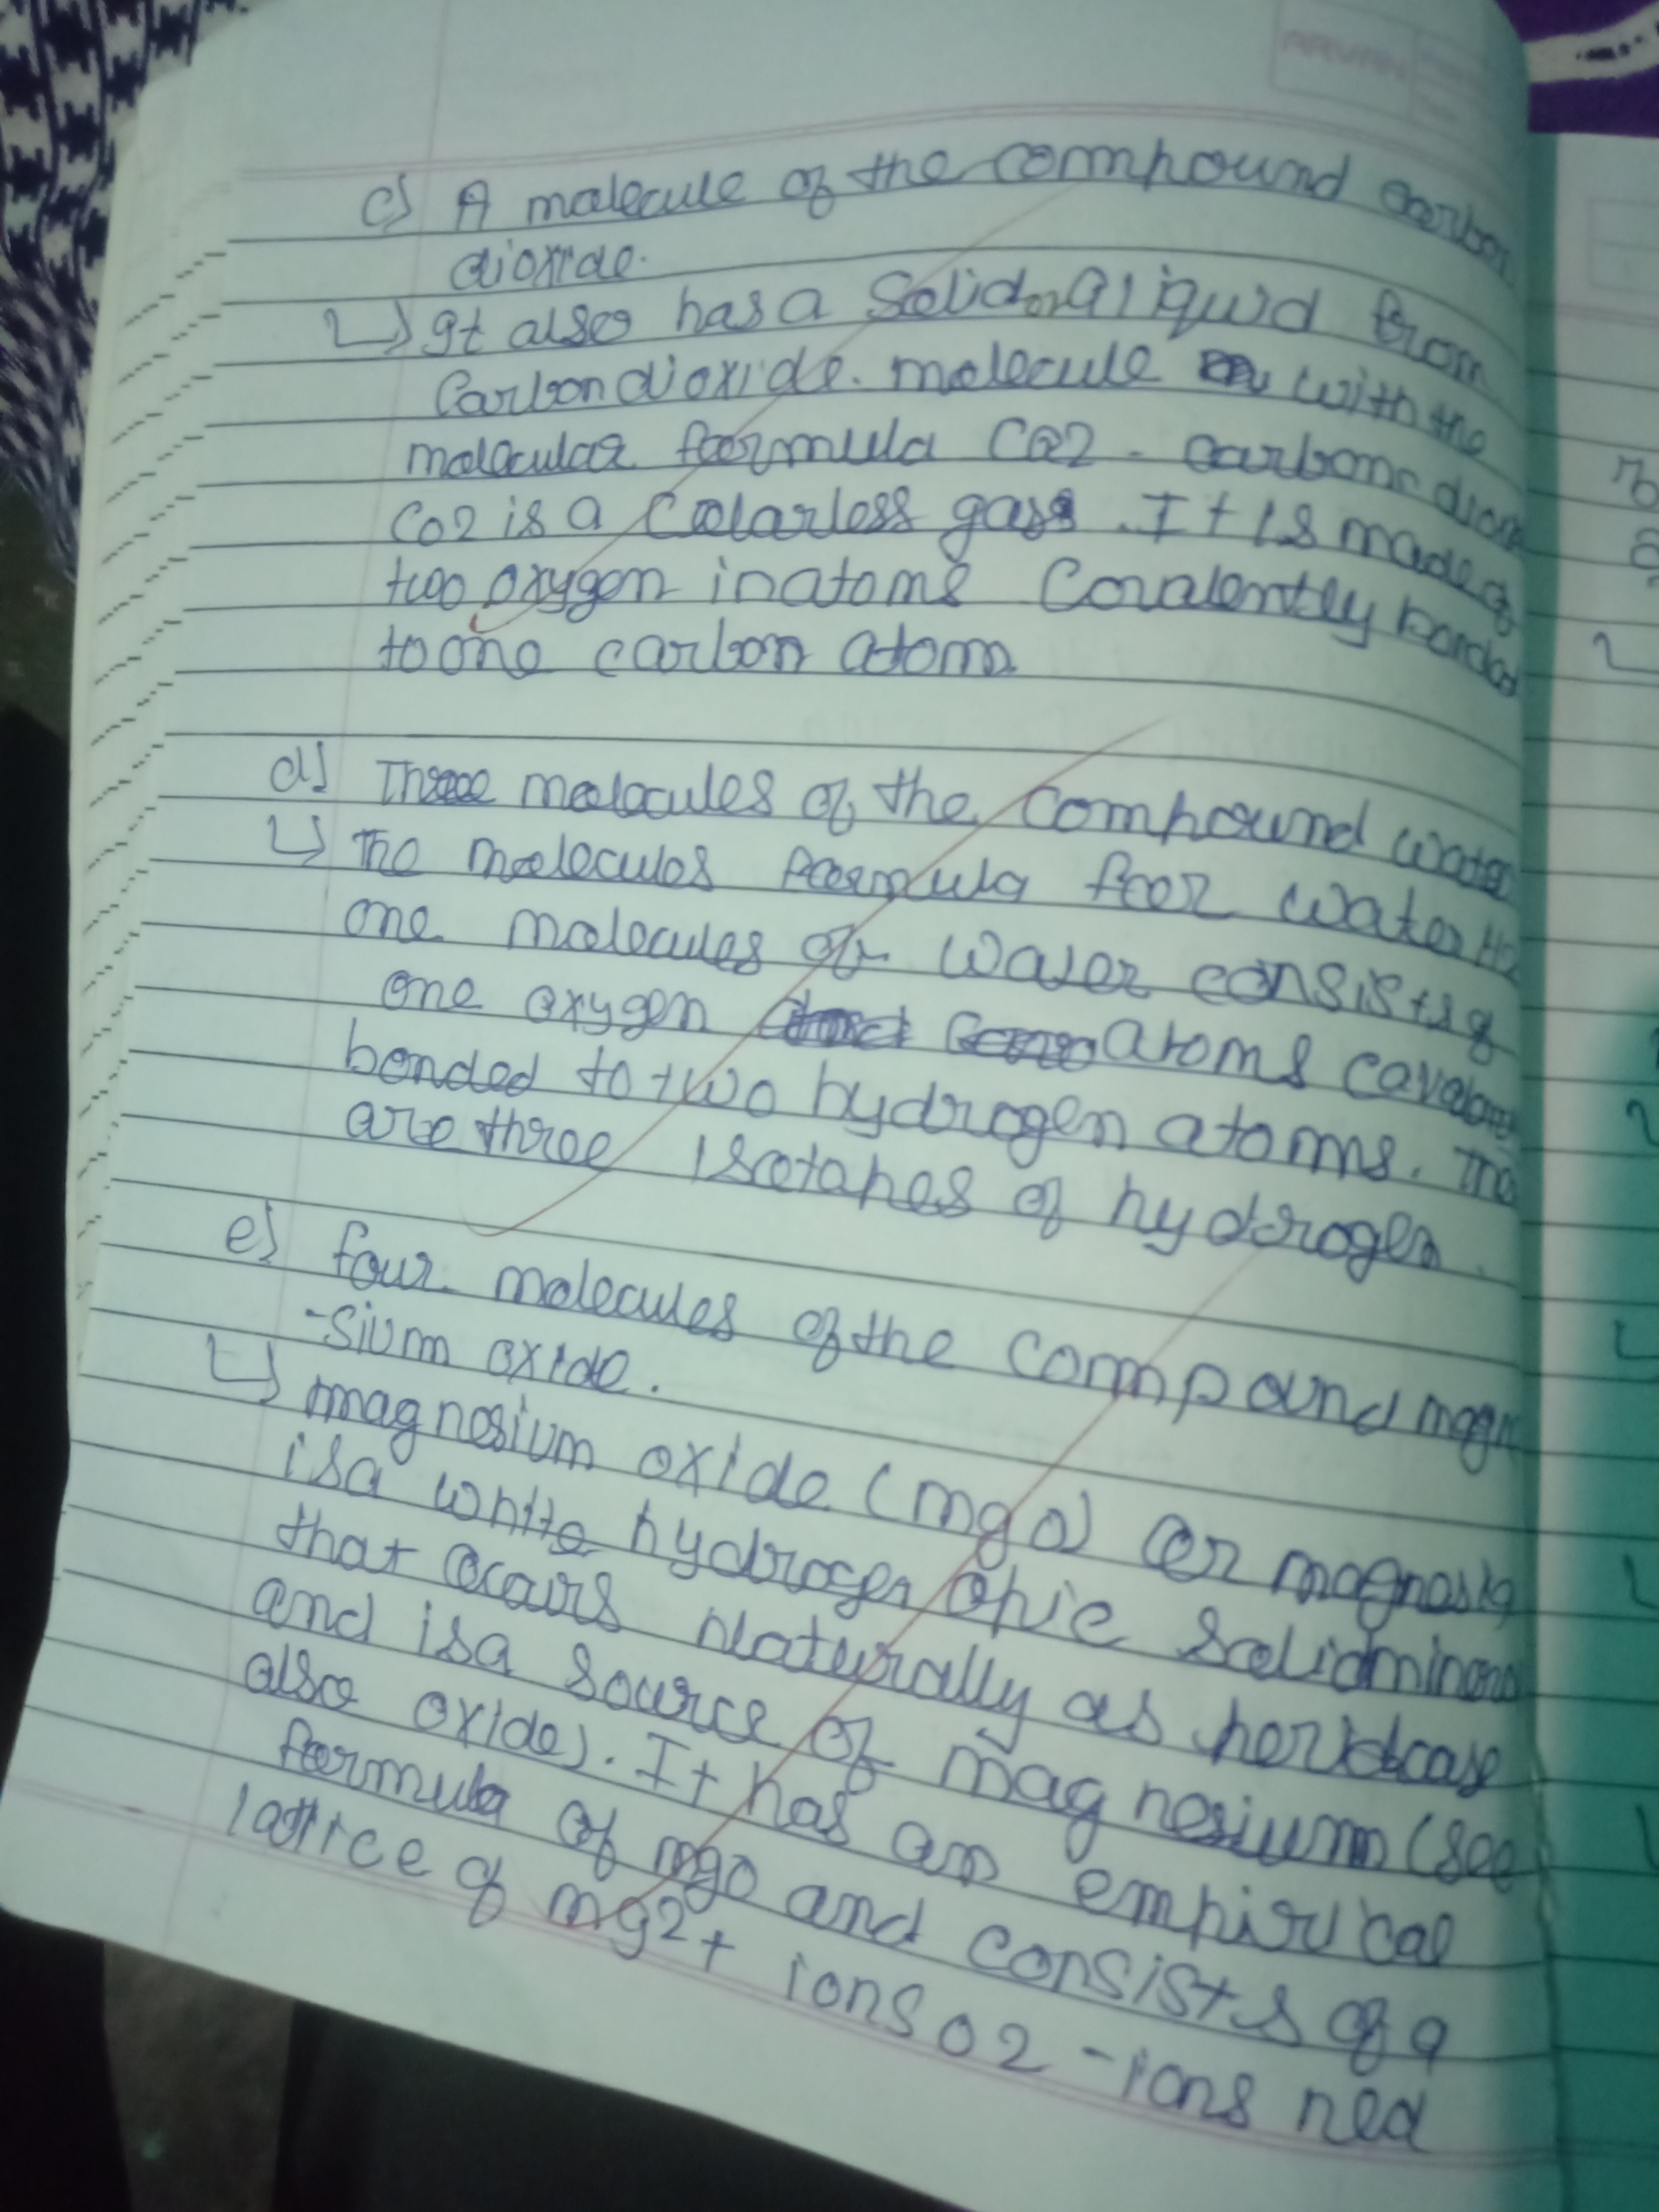 c) A molecule of the compound carbon
dioxide.
↳ It also has a Solid or a liquid from
Carbondioxide. molecule with the
molecular formula CO2 - carbon diox
CO2 is a Colarless gass. It is made of
two oxygen inatoms Covalently bonded
to one carbon atom
d) Three molecules of the compound water
↳ The molecules formula foor water H2
one molecules of water consists of
one oxygen atoms covalent
bonded to two hydrogen atoms. The
are three isotopes of hydrogen.
e) four molecules of the compound magn
-sium oxide.
↳ magnesium oxide (mgo) or magnesia
is a white hydrogen opic solid mineral
that occurs Naturally as periclcase
and is a source of magnesium (see
also oxide). It has an empirical
formula of mgo and consists of a
lattice of mg2+ ions O2 -ions